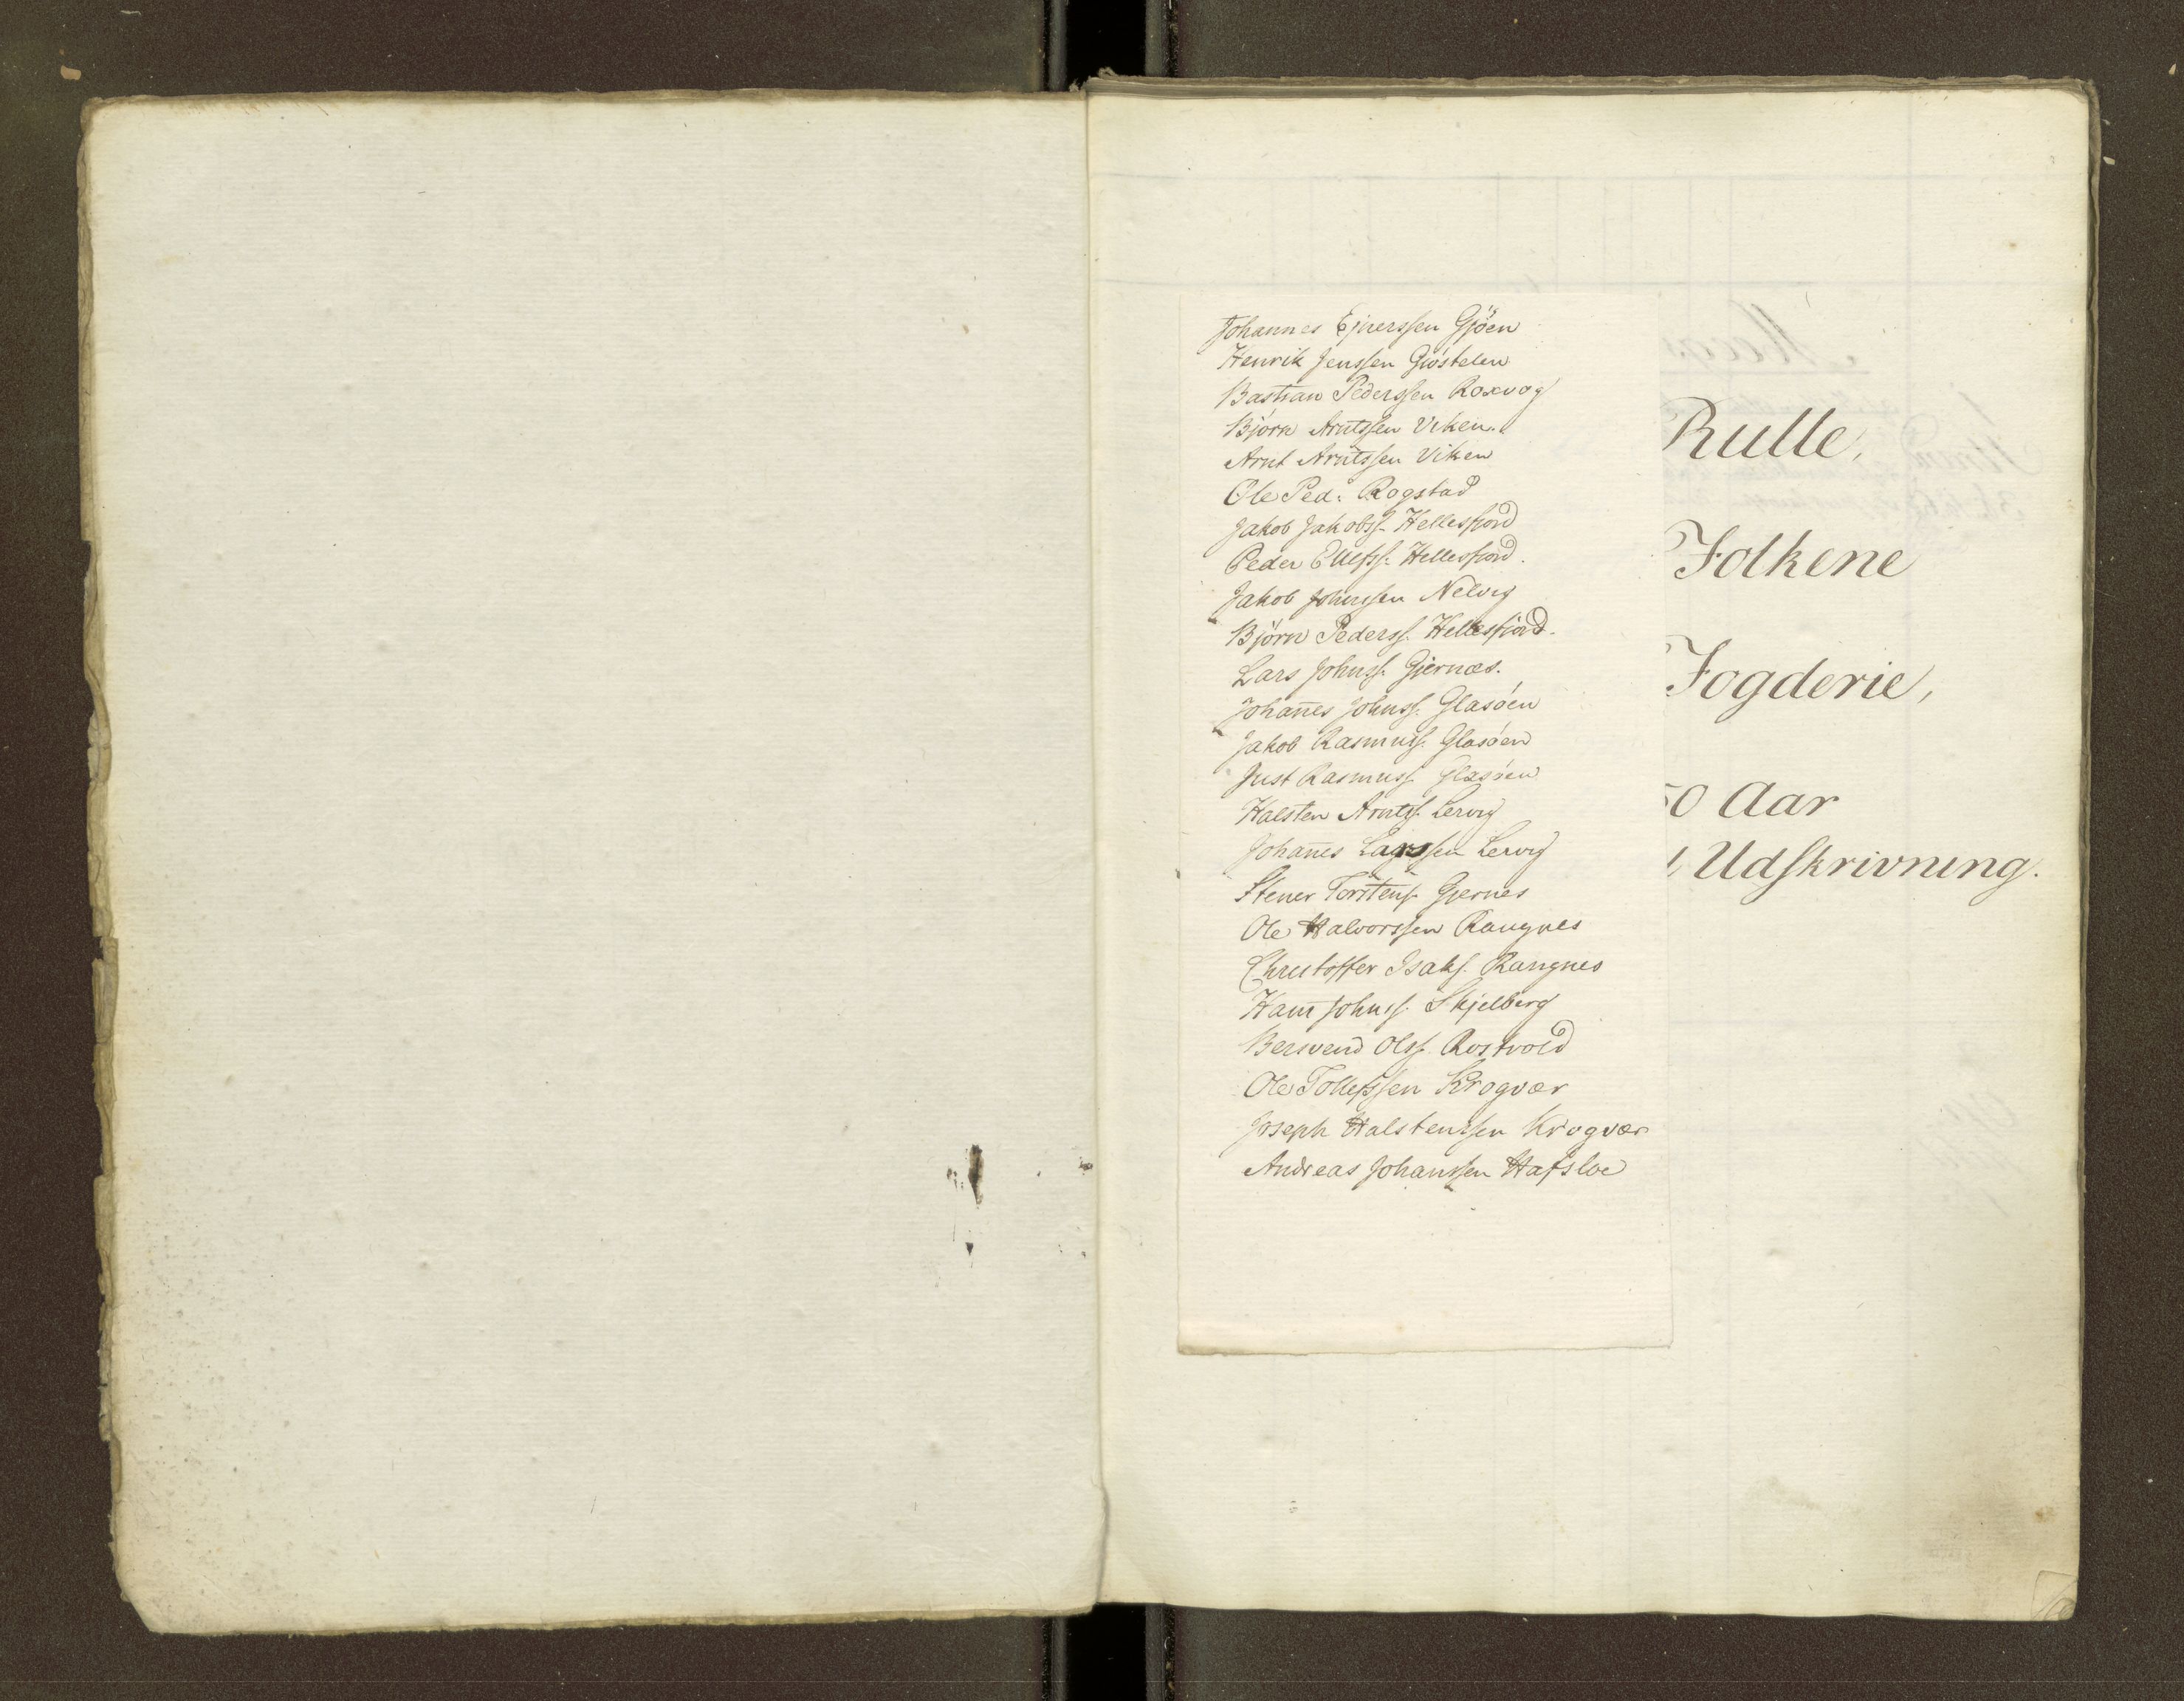 Johannes Ejnerssen Gjöen
Henrik Jenssen Giöstelen
Bastian Pederssen Roxvog
Björn Arntssen Viken.
Arnt Arntssen Viken
Ole Ped: Rogstad
Jakob Jakobss. Hellesfiord
Peder Ellefss. Hellesfiord.
Jakob Johnssen Nelvig
Björn Pederss. Hellesfiord.
Lars Johnss. Gjernæs.
Johañes Johnss. Glasöen
Jakob Rasmuss. Glasöen
Just Rasmuss. Glasöen
Halsten Arntss. Lervig
Johañes Larssen Lervig
Stener Torstens. Gjernes
Ole Halvorssen Rangnes
Christoffer Isaks. Rangnes
Johnss. Skjelberg
Berwend Olss. Rostvold
Ole Tollefssen Krogvær
Joseph Halstenssen Krogvær
Andreas Johanssen Hafsloe
Rulle,
Folkene
Fogderie,
50 Aar
Udskrivning.